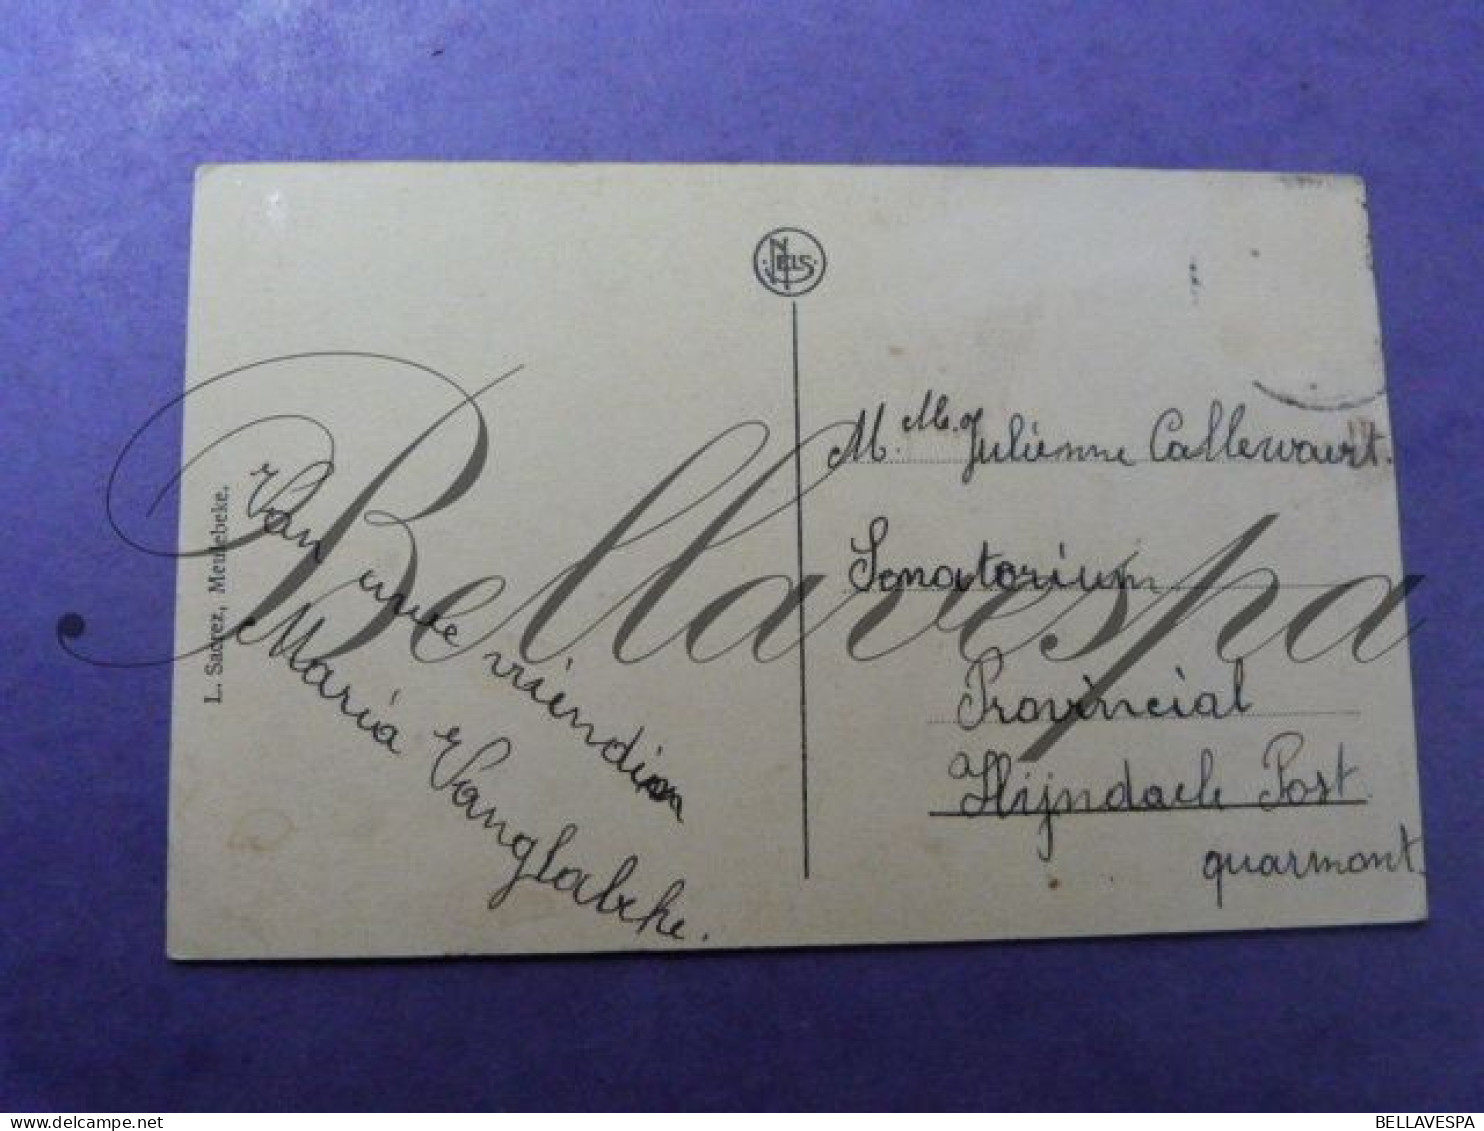 NELS
L. Saerez, Meulebeke.
Van uwe vriendin
Maria Vanglabeke.
M.lle Julienne Callewaert.
Sanatorium
Provincial
a Hijndaele Post
quarmont.
Bellavespa
BELLAVESPA